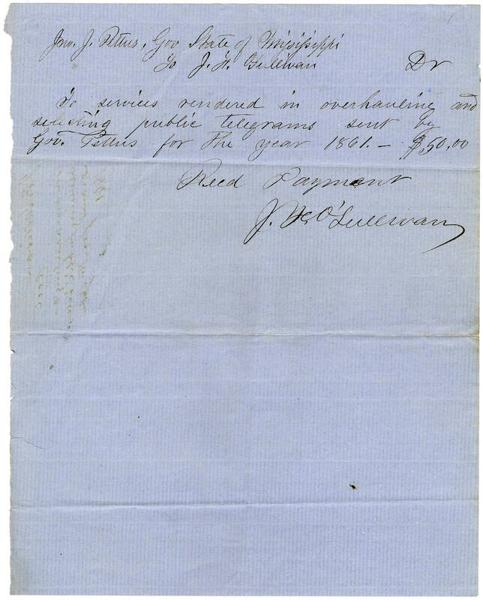 Jno. J. Pettus, Gov State of Mississippi
To J. H. O'Sullivan Dr
To services rendered in overhauling and
selecting public telegrams sent by
Gov. Pettus for the year 1861.— $50.00
Recd Payment
J. H. O'Sullivan